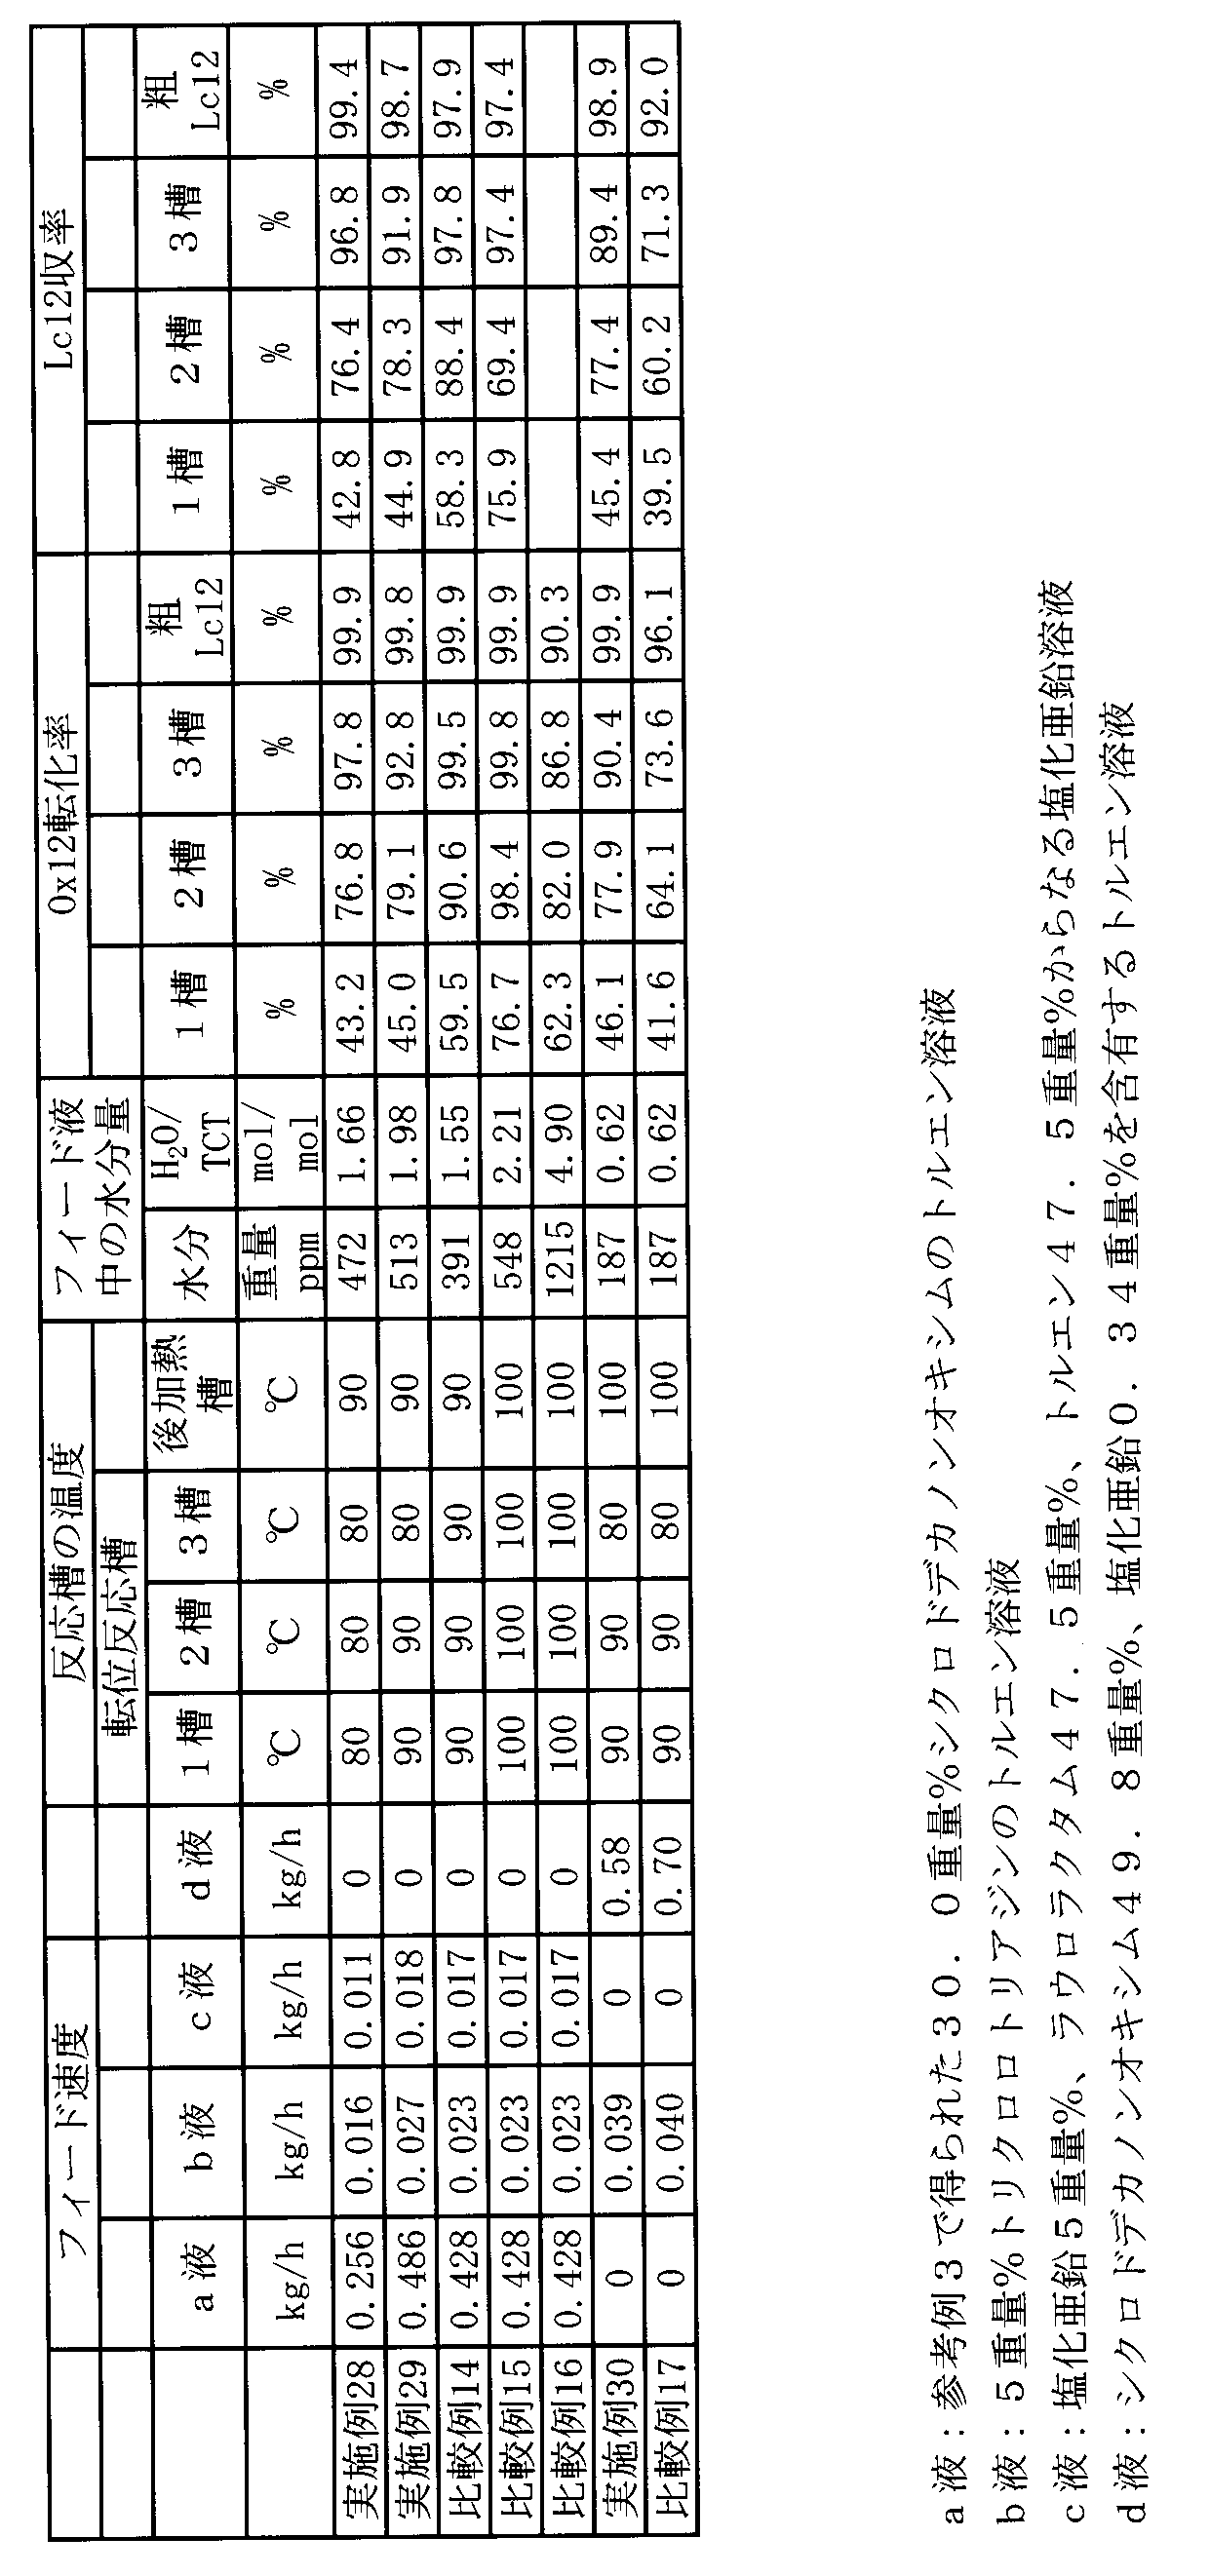 フィード速度 反応槽の温度 フィード液中の水分量 0x12転化率 Lc12収率
転位反応槽
a液 b液 c液 d液 1槽 2槽 3槽 後加熱槽 水分 H₂O/TCT 1槽 2槽 3槽 粗Lc12 1槽 2槽 3槽 粗Lc12
kg/h kg/h kg/h kg/h ℃ ℃ ℃ ℃ 重量ppm mol/mol % % % % % % % %
実施例28 0.256 0.016 0.011 0 80 80 80 90 472 1.66 43.2 76.8 97.8 99.9 42.8 76.4 96.8 99.4
実施例29 0.486 0.027 0.018 0 90 90 80 90 513 1.98 45.0 79.1 92.8 99.8 44.9 78.3 91.9 98.7
比較例14 0.428 0.023 0.017 0 90 90 90 90 391 1.55 59.5 90.6 99.5 99.9 58.3 88.4 97.8 97.9
比較例15 0.428 0.023 0.017 0 100 100 100 100 548 2.21 76.7 98.4 99.8 99.9 75.9 69.4 97.4 97.4
比較例16 0.428 0.023 0.017 0 100 100 100 100 1215 4.90 62.3 82.0 86.8 90.3
実施例30 0 0.039 0 0.58 90 90 80 100 187 0.62 46.1 77.9 90.4 99.9 45.4 77.4 89.4 98.9
比較例17 0 0.040 0 0.70 90 90 80 100 187 0.62 41.6 64.1 73.6 96.1 39.5 60.2 71.3 92.0
a液：参考例3で得られた30．0重量%シクロドデカノンオキシムのトルエン溶液
b液：5重量%トリクロロトリアジンのトルエン溶液
c液：塩化亜鉛5重量%、ラウロラクタム47．5重量%、トルエン47．5重量%からなる塩化亜鉛溶液
d液：シクロドデカノンオキシム49．8重量%、塩化亜鉛0．34重量%を含有するトルエン溶液